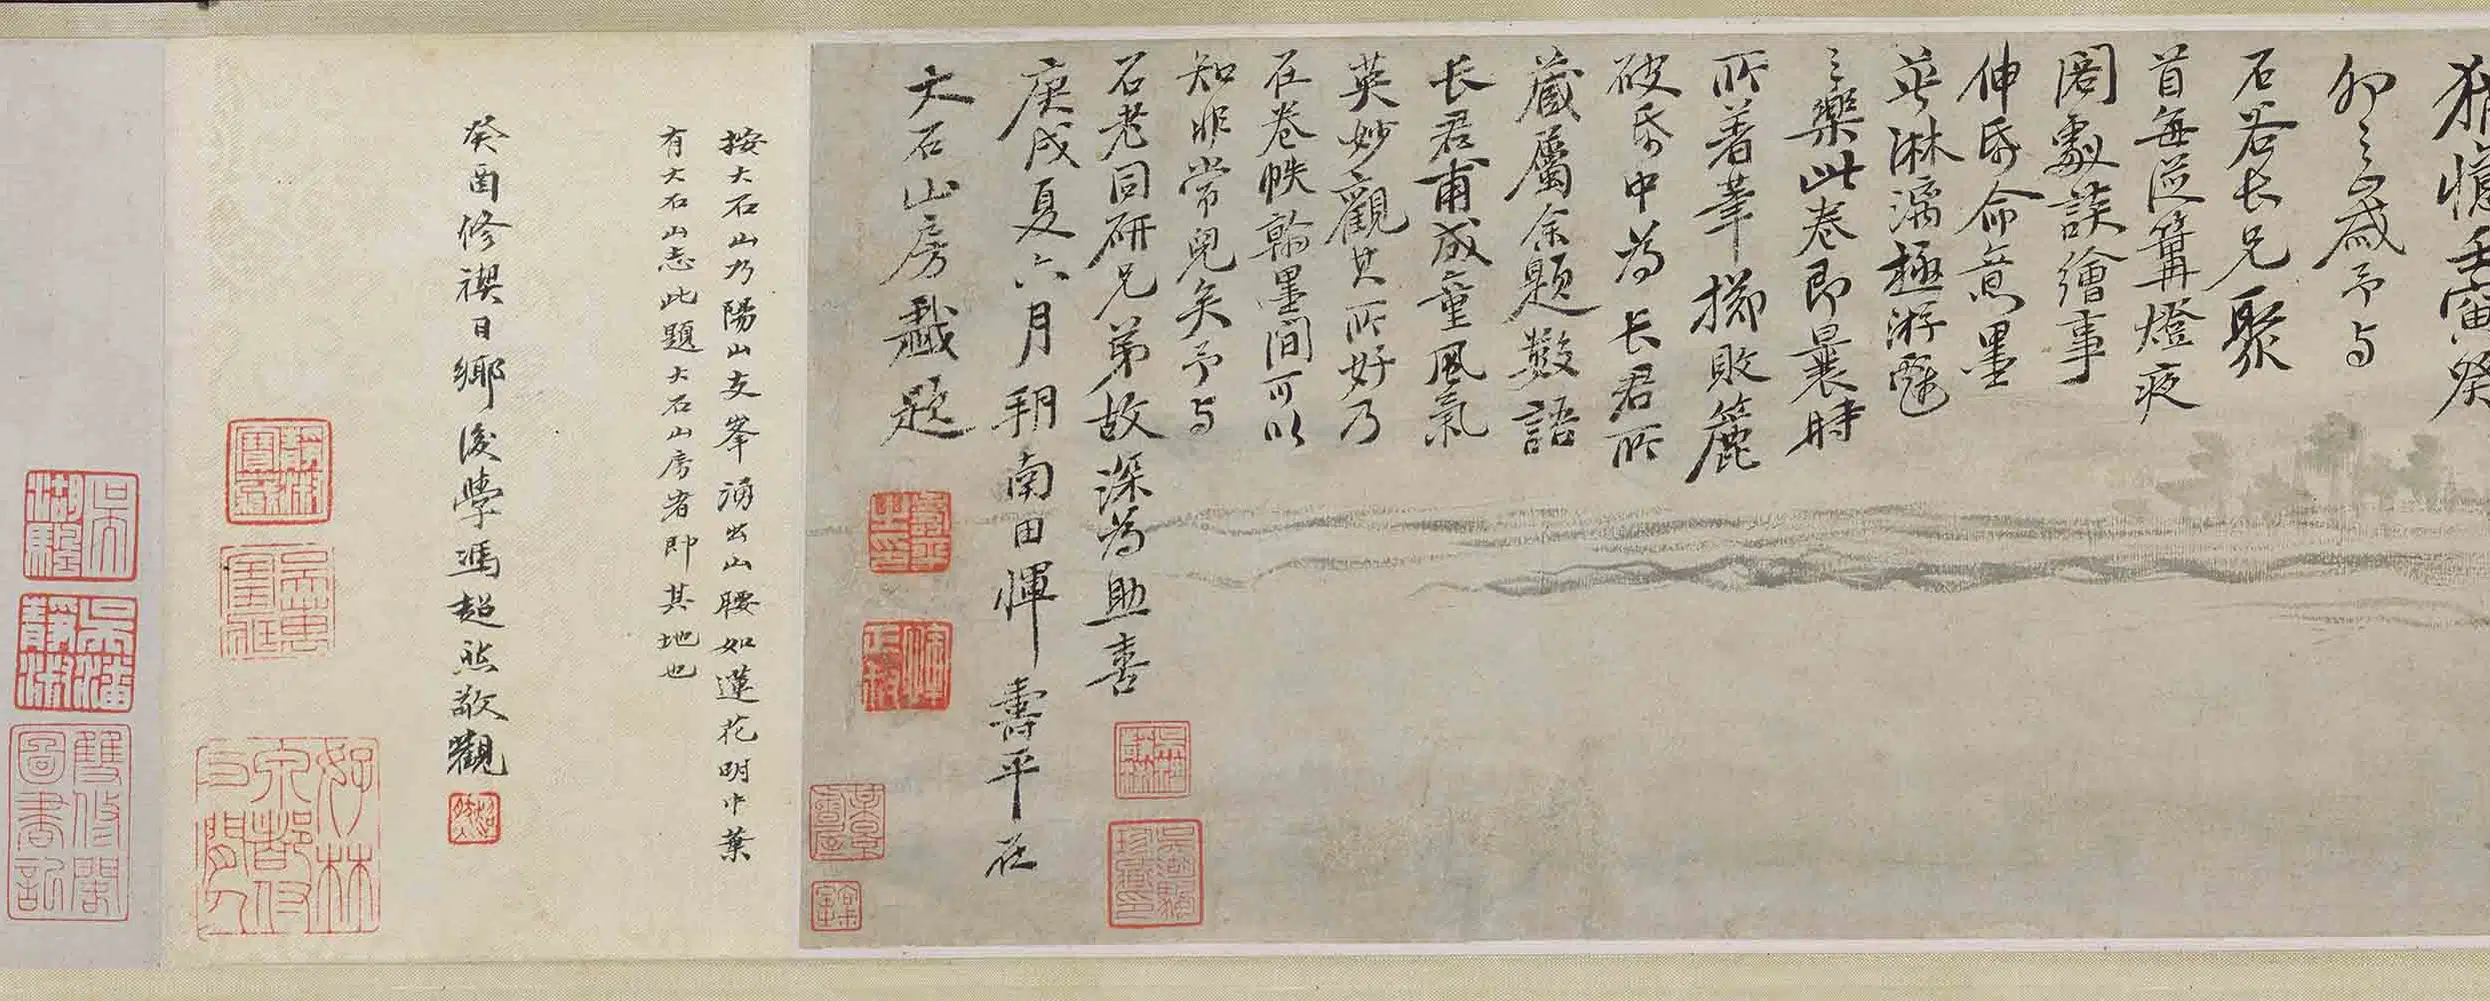 猶憶壬寅癸
卯之歲予与
石谷长兄聚
首每從篝燈夜
闌劇談繪事
伸紙命意墨
華淋漓極游
之樂此卷即曩時
所著筆擲敗簏
破紙中为长君所
藏屬余題数語
长君甫成童風氣
英妙觀其所好乃
在卷帙翰墨間可以
知非常兒矣予与
石老同研兄弟故深为助喜
庚戌夏六月朔南田惲壽平在
大石山房戲題
按大石山乃陽山支峯湧出山腰如蓮花明中葉
有大石山志此題大石山房者即其地也
癸酉修禊日鄉後學馮超然敬觀
雙修閣圖書記